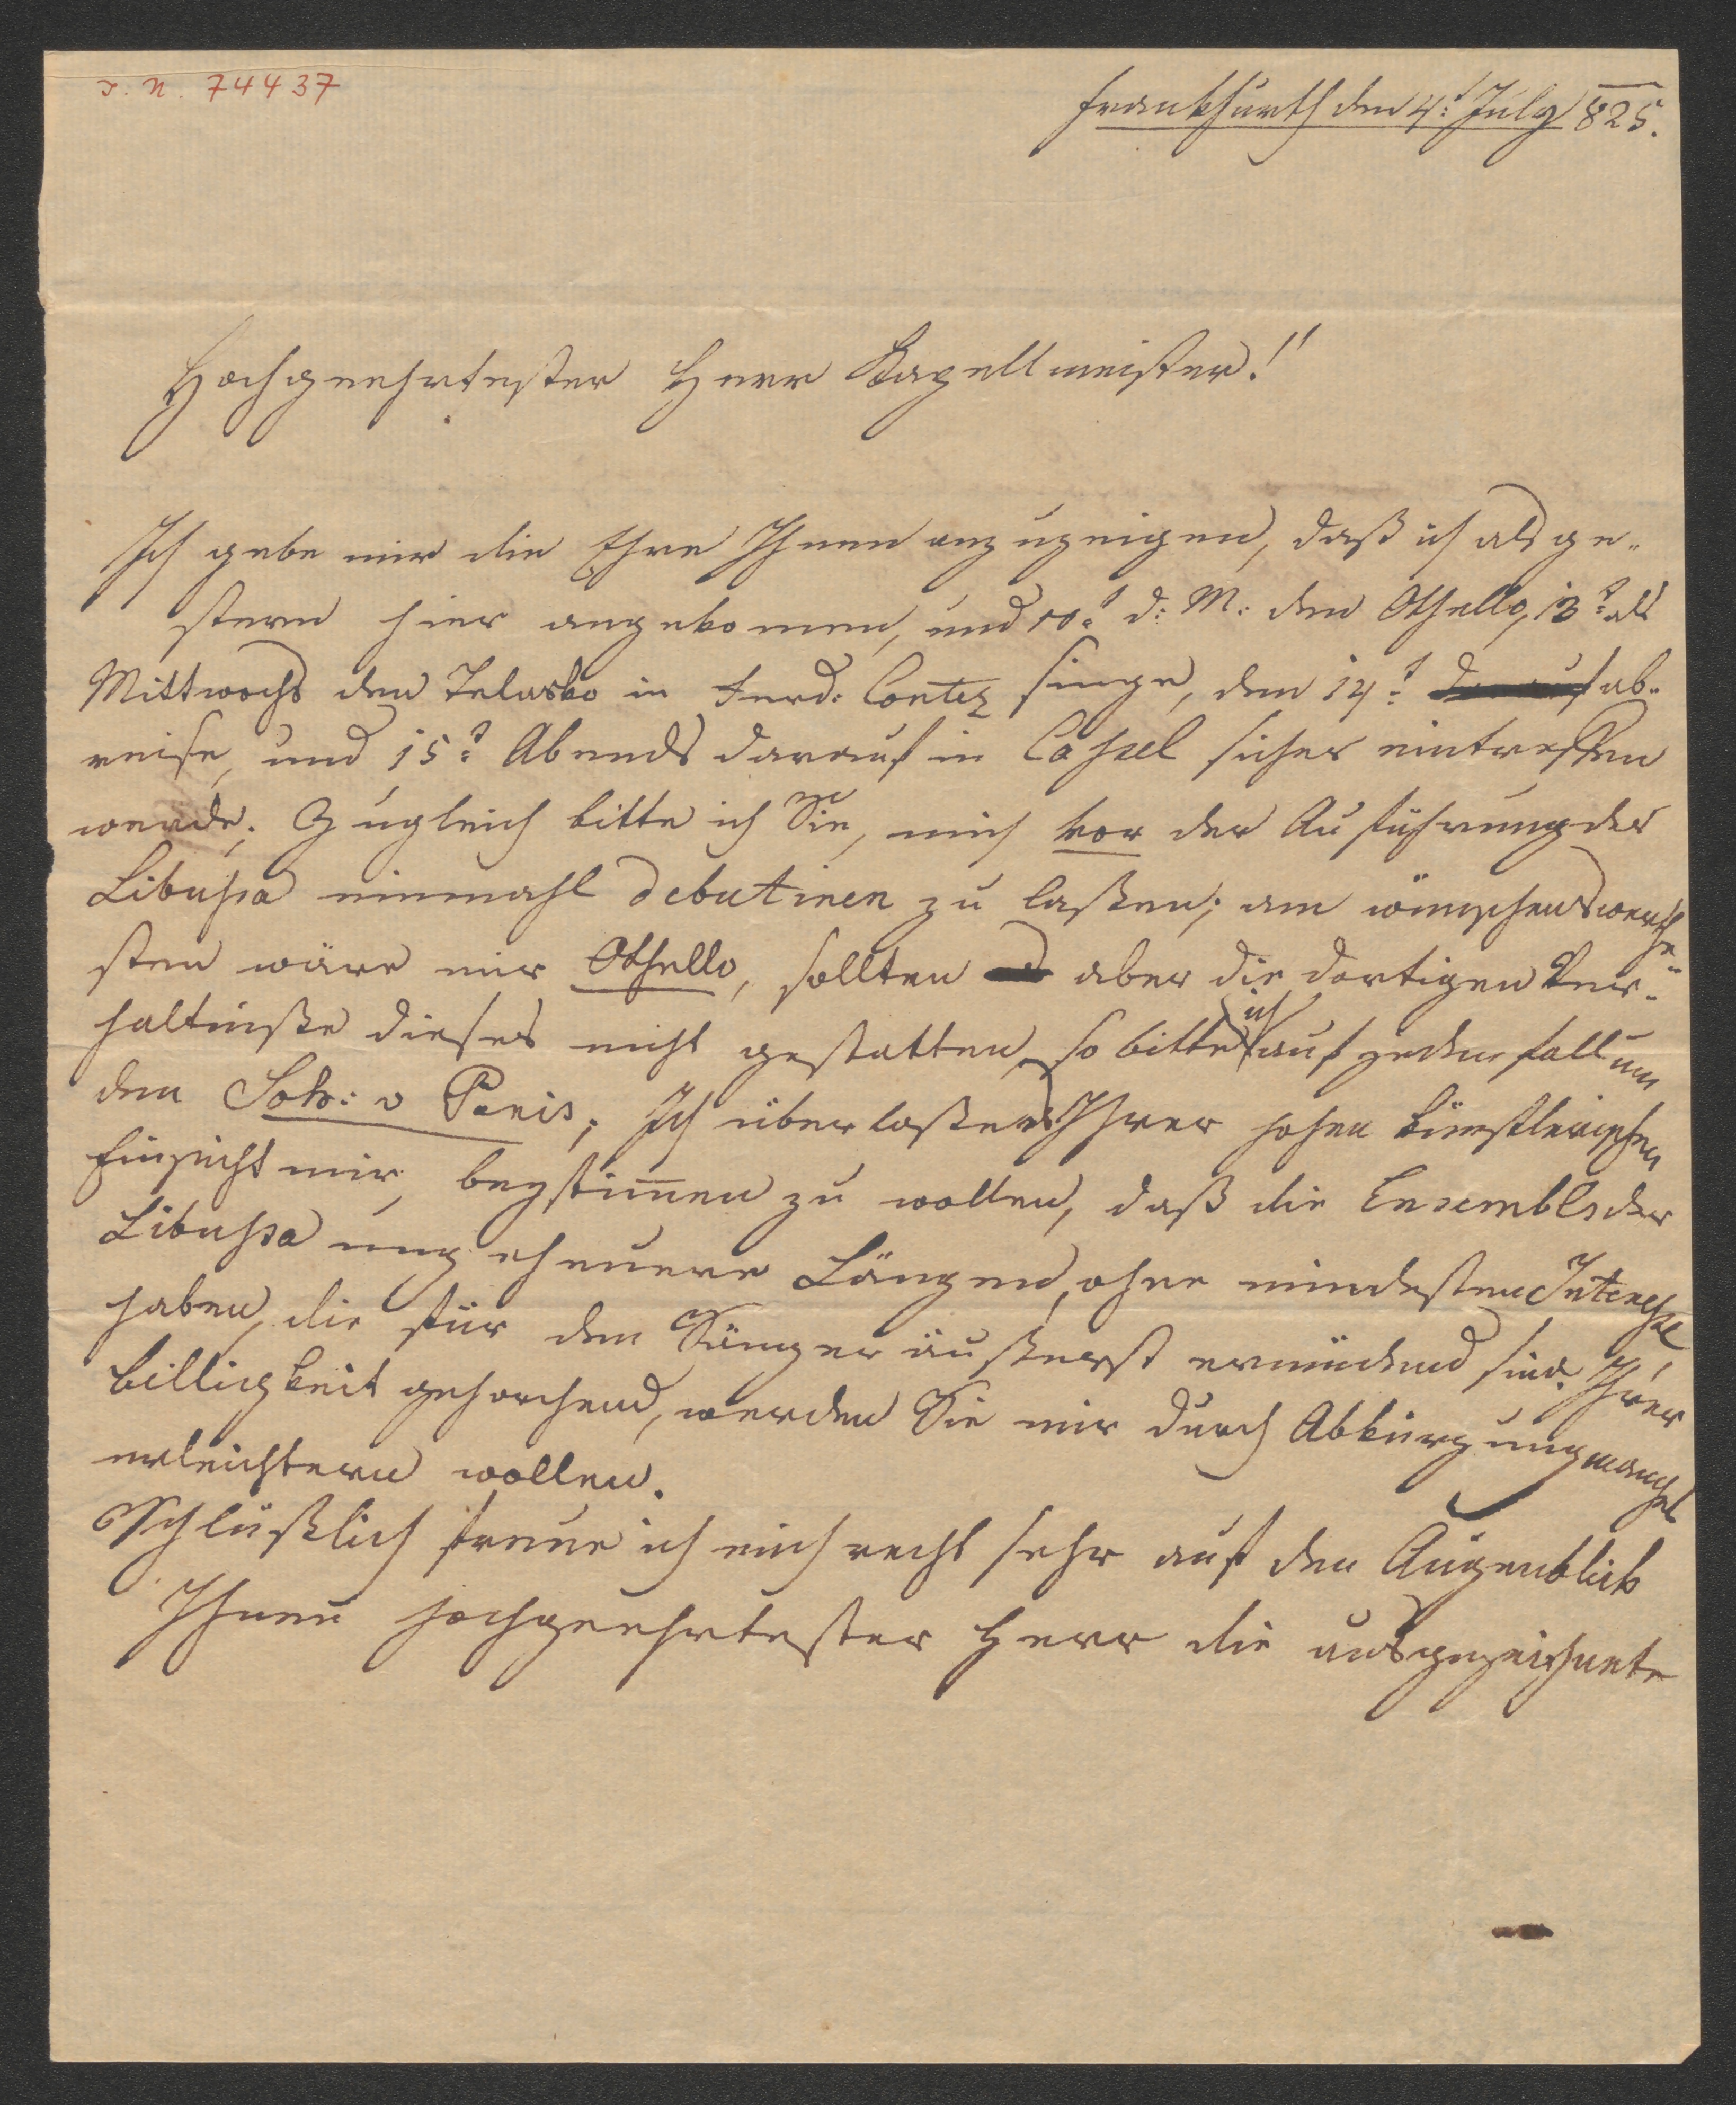 I. N. 74437
Frankfurth den 4t July 825.
Hochgeehrtester Herr Kapellmeister!
Ich gebe mir die Ehre Ihnen anzuzeigen, daß ich als ge-
stern hier angekomen, und 10t d: M: den Othello, 13t als
Mittwochs den Telasko in Ferd: Cortez singe, den 14t ab-
reise, und 15t Abends darauf in Cassel sicher eintreffen
werde. Zugleich bitte ich Sie, mich vor der Aufführung der
Libussa einmahl debutiren zu laßen; am wünschenswerthe-
sten wäre mir Othello, sollten aber die dortigen Ver-
haltniße dieses nicht gestatten, so bitte ich auf jeden Fall um
den Joh: v Paris; Ich überlaße es Ihrer hohen künstlerischen
Einsicht mir, beystimen zu wollen, daß die Ensembls der
Libussa ungeheuere Längen, ohne mindesten Interesse
haben, die für den Sänger äußerst ermüdend sind. Ihrer
Billigkeit gehorchend, werden Sie mir durch Abkürzung manches
erleichtern wollen.
Schlüßlich freue ich mich recht sehr auf den Augenblick
Ihnen hochgeehrtester Herr die ausgezeichnete